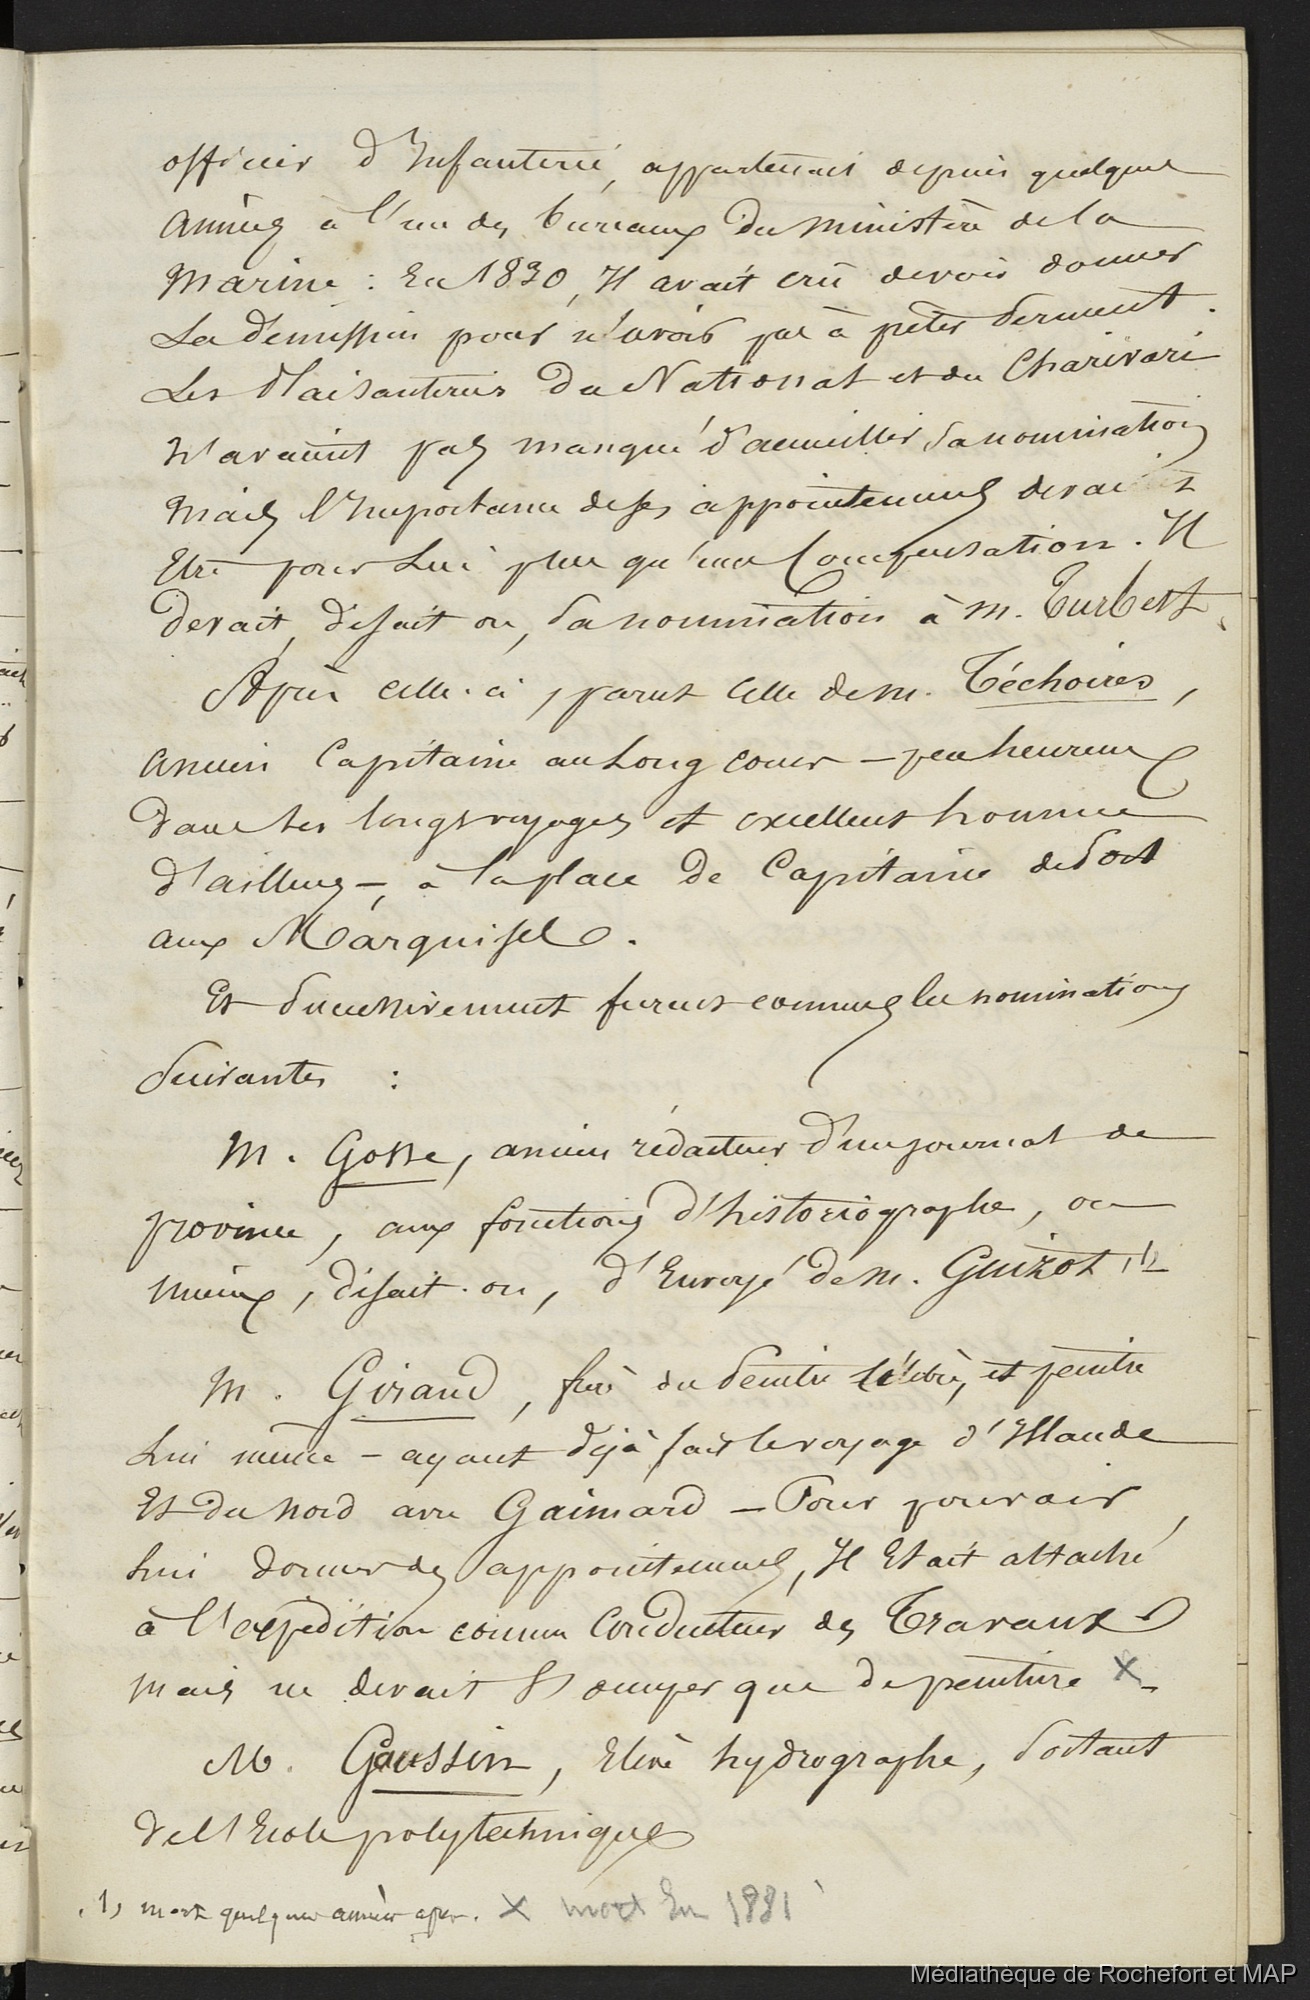 officier d'Infanterie, appartenait depuis quelques
années à l'un des bureaux du ministère de la
marine : En 1830, Il avait crû devoir donner
sa démission pour n'avoir pas à prêter serment.
Les Plaisanteries du National et du Charivari
n'avaient pas manqué d'accueillir sa nomination
mais l'Importance de ses appointements devaient
Etre pour Lui plus qu'une Compensation. Il
devait, disait on, sa nomination à M. Turbert.
Après celle-ci, parut celle de M. Téchoires,
ancien Capitaine au Long cours – peu heureux
dans ses longs voyages et excellent homme
d'ailleurs –, à la place de Capitaine de Port
aux Marquises.
Et successivement furent connues les nominations
suivantes :
M. Gosse, ancien rédacteur d'un journal de
province, aux fonctions d'historiographe, ou
mieux, disait-on, d'Envoyé de M. Guizot (1)
M. Giraud, frère du Peintre célèbre, et peintre
Lui même – ayant déjà fait le voyage d'Islande
Et du Nord avec Gaimard – Pour pouvoir
Lui donner des appointements, Il Etait attaché
à l'expédition comme Conducteur des Travaux
mais ne devait s'occuper que de peinture X
M. Gaussin, Elève hydrographe, sortant
de l'Ecole polytechnique
(1) mort quelques années apr. X mort En 1881
Médiathèque de Rochefort et MAP